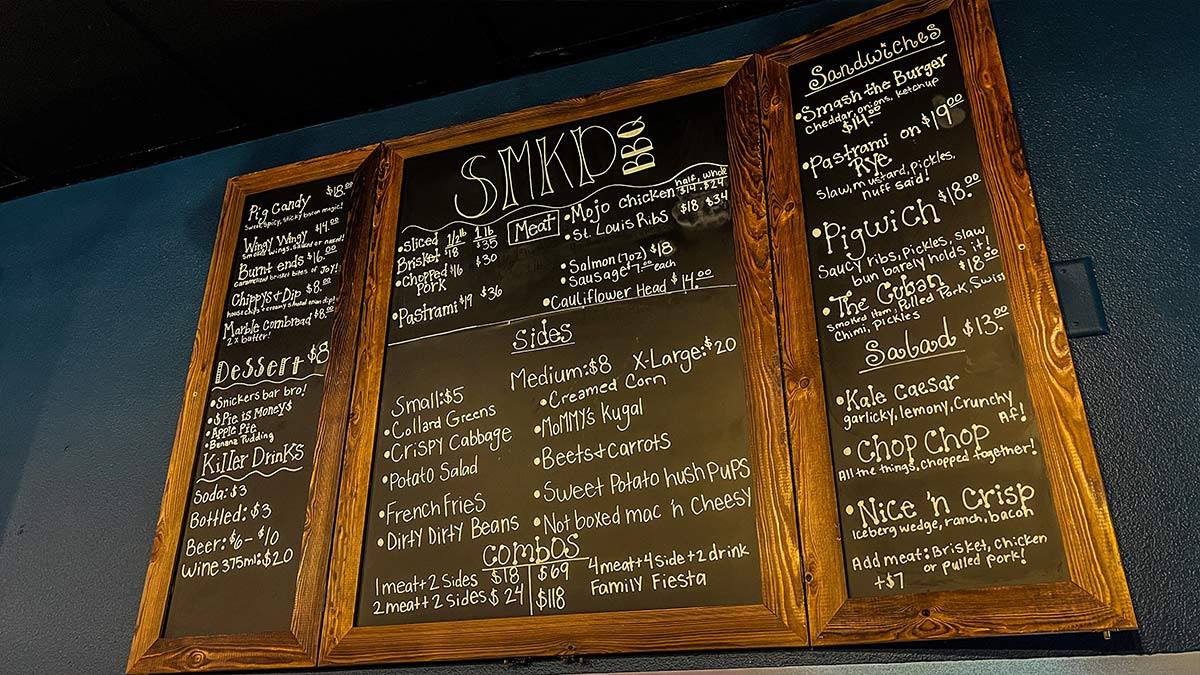 Pig Candy $18.00
Sweet, spicy, sticky bacon magic!
Wingy Wingy $14.00
smoked wings, sauced or naked!
Burnt ends $16.00
caramelized brisket bites of Joy!
Chippys + Dip $8.00
house chips + creamy smoked onion dip!
Marble Cornbread $8.00
2 x butter!
Dessert $8
•Snickers bar bro!
•$Pie is Money$
•Apple Pie
•Banana Pudding
Killer Drinks
Soda: $3
Bottled: $3
Beer: $6 - $10
Wine 375ml: $20
SMKD BBQ
Meat
•Sliced Brisket 1/2 lb $18 1 lb $35
•Chopped Pork $16 $30
•Pastrami $19 $36
half, whole
•Mojo chicken $14 . $24
•St. Louis Ribs $18 $34
•Salmon (7oz) $18
•Sausage $7.00 each
•Cauliflower Head $14.00
Sides
Small: $5 Medium: $8 X-Large: $20
•Collard Greens
•Crispy Cabbage
•Potato Salad
•French Fries
•Dirty Dirty Beans
•Creamed Corn
•Mommy's Kugal
•Beets + Carrots
•Sweet Potato hush pups
•Not boxed mac 'n Cheesy
Combos
1 meat + 2 Sides $18
2 meat + 2 Sides $24
$69 4 meat + 4 side + 2 drink
$118 Family Fiesta
Sandwiches
•Smash the Burger
cheddar, onions, ketchup
$14.00
•Pastrami on Rye $19.00
Slaw, mustard, pickles,
nuff said!
•Pigwich $18.00
Saucy ribs, pickles, slaw
bun barely holds it!
•The Cuban $18.00
smoked Ham, Pulled Pork, Swiss
Chimi, pickles
Salad $13.00
•Kale Caesar
garlicky, lemony, Crunchy
Af!
•Chop Chop
All the things, chopped together!
•Nice 'n Crisp
Iceberg wedge, ranch, bacon
Add meat: Brisket, Chicken
or pulled pork!
+$7